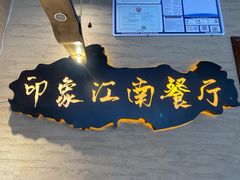 印象江南餐厅